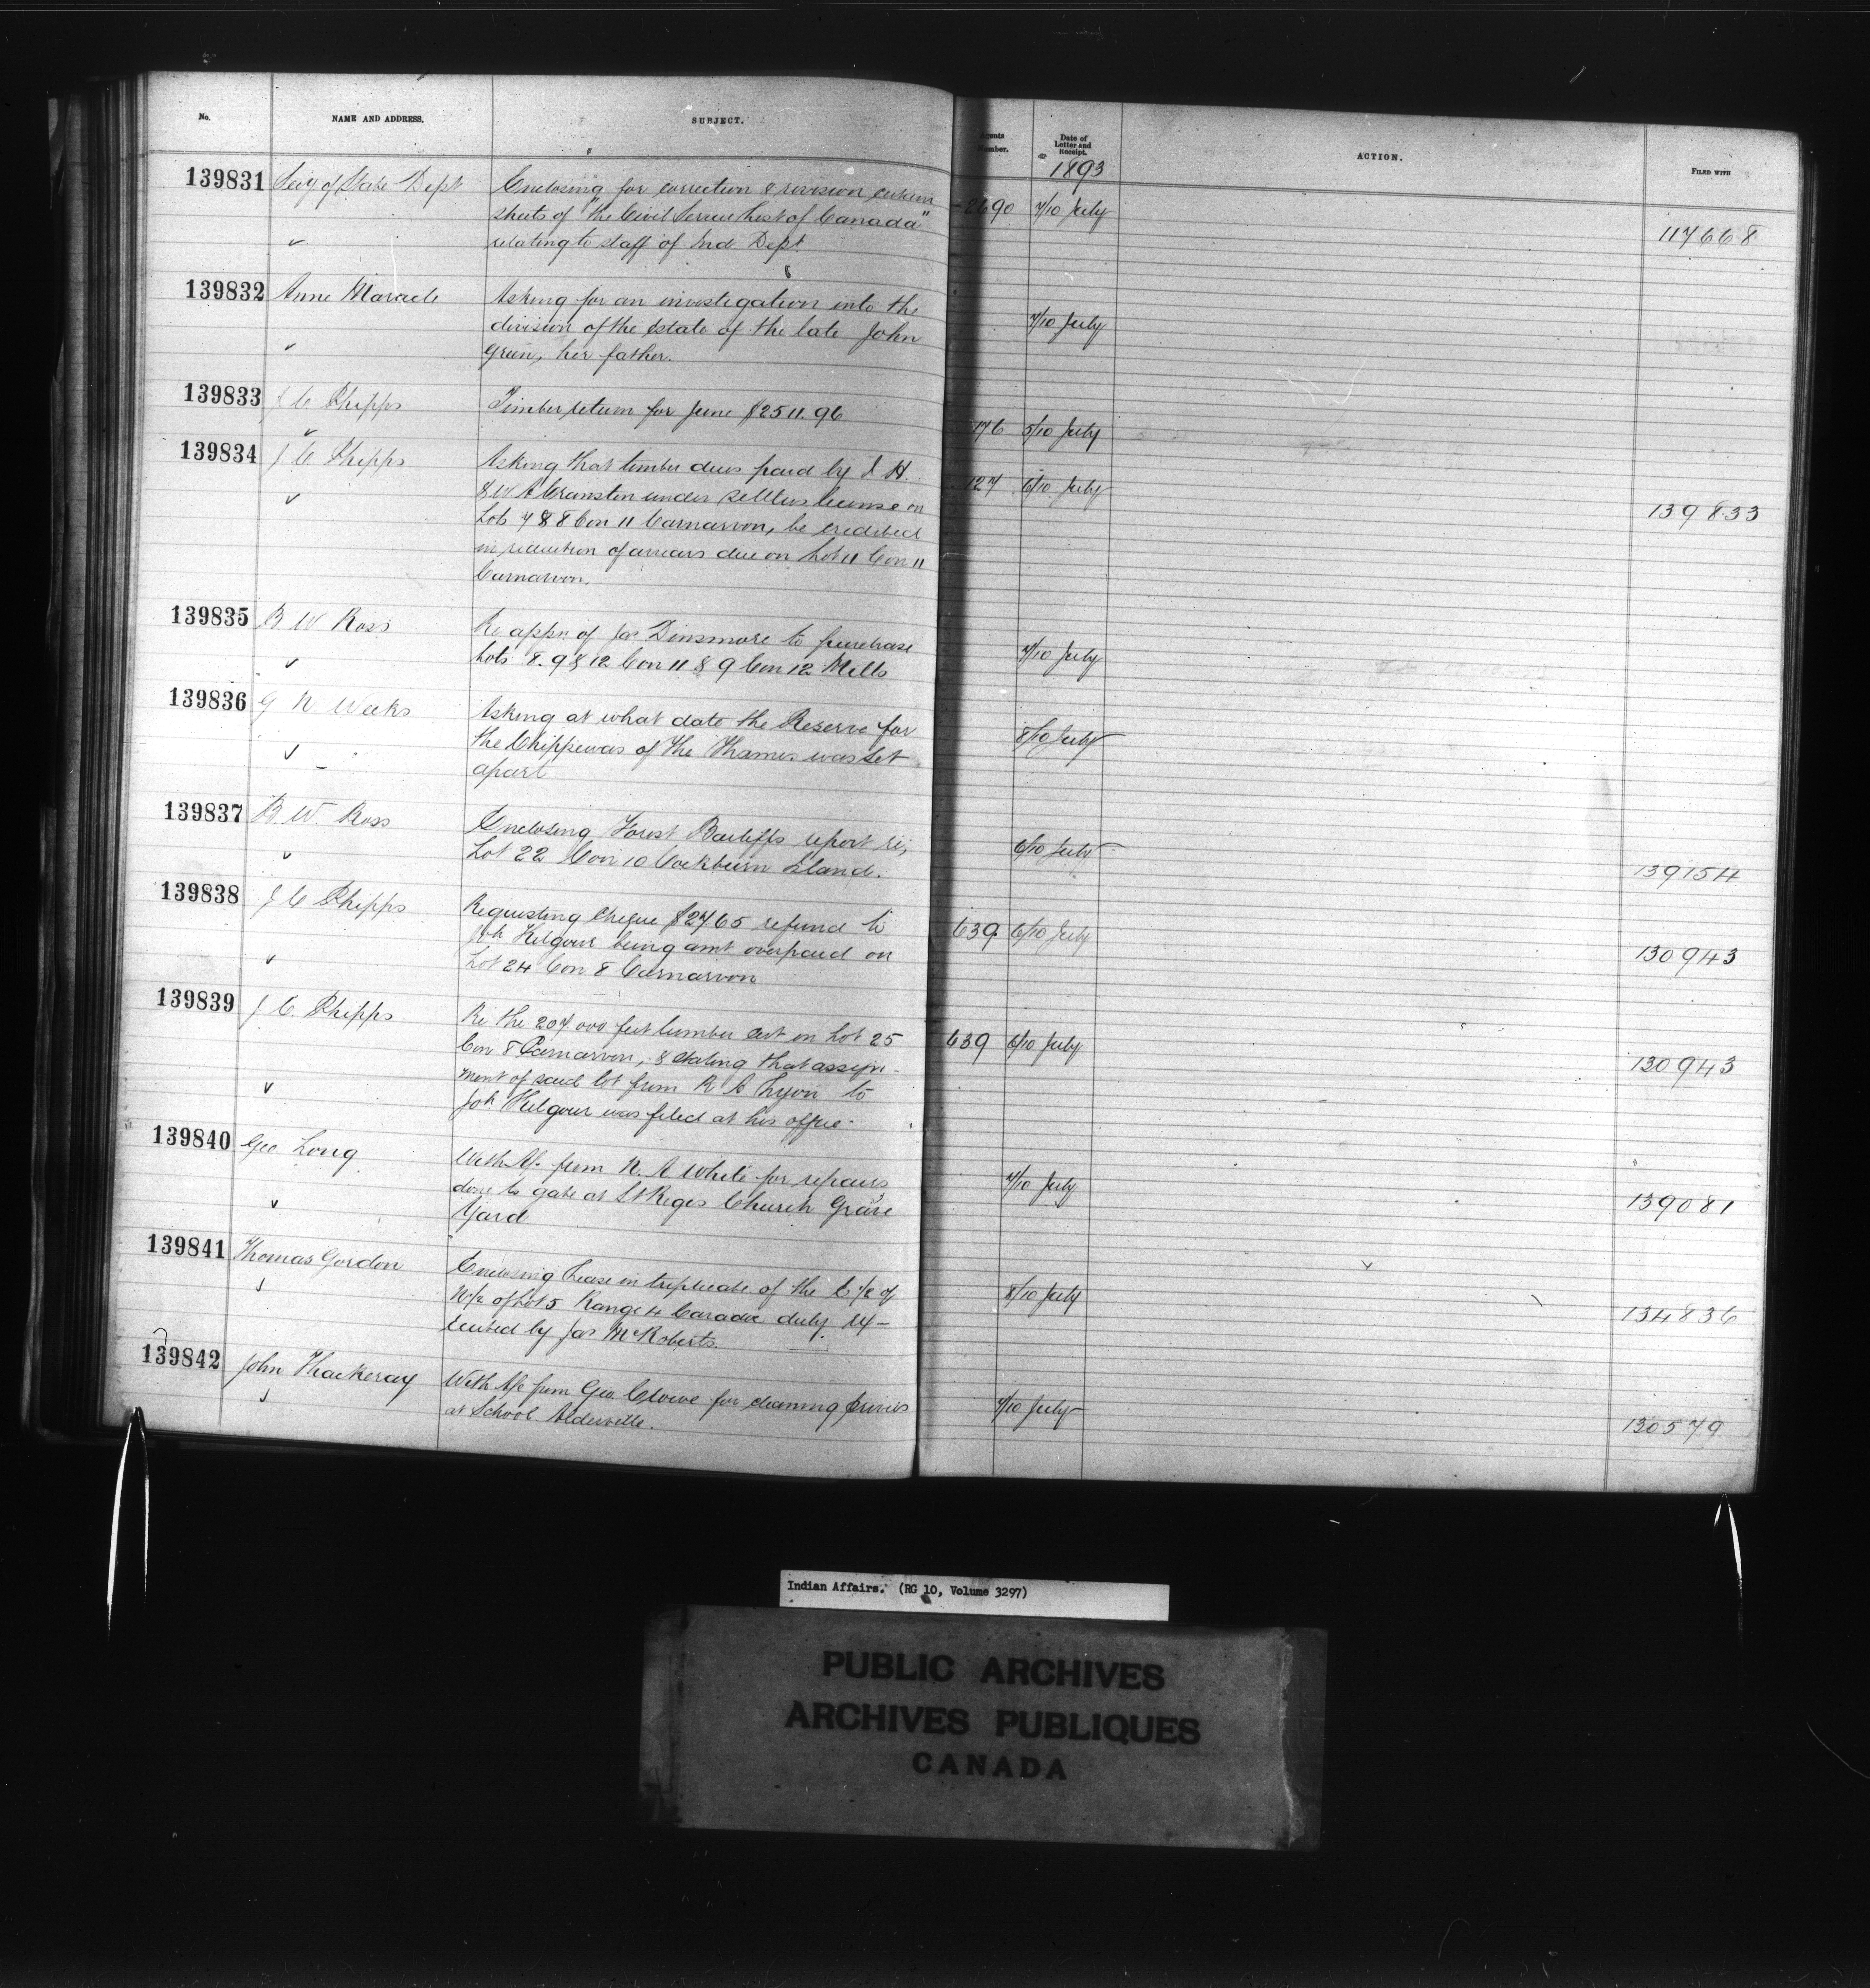 No. NAME AND ADDRESS. SUBJECT. Agents Number. Date of Letter and Receipt. ACTION. FILED WITH
1893
139831 Secy of State Dept Enclosing for correction & revision certain 2690 7/10 July 117668
sheets of "The Civil Service List of Canada"
relating to staff of Ind Dept
139832 Anne Maracle Asking for an investigation into the 7/10 July
division of the Estate of the late John
Green, her father.
139833 J C Phipps Timber return for June $2511.96 176 5/10 July
139834 J. C. Phipps Asking that timber dues paid by J. H. 127 6/10 July 139833
& W A Cranston under settlers license on
Lots 7 & 8 Con 11 Carnarvon, be credited
in reduction of arrears due on Lot 11 Con 11
Carnarvon.
139835 B W Ross Re appn of Jas Dinsmore to purchase 7/10 July
Lots 8. 9 & 12 Con 11 & 9 Con 12 Mills
139836 G N Weeks Asking at what date the Reserve for 8/10 July
the Chippewas of The Thames was set
apart
139837 B. W. Ross Enclosing Forest Bailiffs report re; 6/10 July 139154
Lot 22 Con 10 Cockburn Island.
139838 J C Phipps Requesting cheque $27 65 refund to 639 6/10 July 130943
Joh Kilgour being amt overpaid on
Lot 24 Con 8 Carnarvon
139839 J C. Phipps Re the 207,000 feet lumber cut on Lot 25 639 6/10 July 130943
Con 8 Carnarvon, & stating that assign-
ment of said lot from R A Lyon to
Joh Kilgour was filed at his office.
139840 Geo Long With A/c from N. A. White for repairs 7/10 July 139081
done to gate at St Regis Church Grave
Yard
139841 Thomas Gordon Enclosing Lease in triplicate of the E 1/2 of 8/10 July 134836
N 1/2 of Lot 5 Range 4 Caradoc duly ex-
ecuted by Jas McRoberts.
139842 John Thackeray With A/c from Geo Crowe for cleaning privies 7/10 July 130579
at School Alderville.
Indian Affairs. (RG 10, Volume 3297)
PUBLIC ARCHIVES
ARCHIVES PUBLIQUES
CANADA